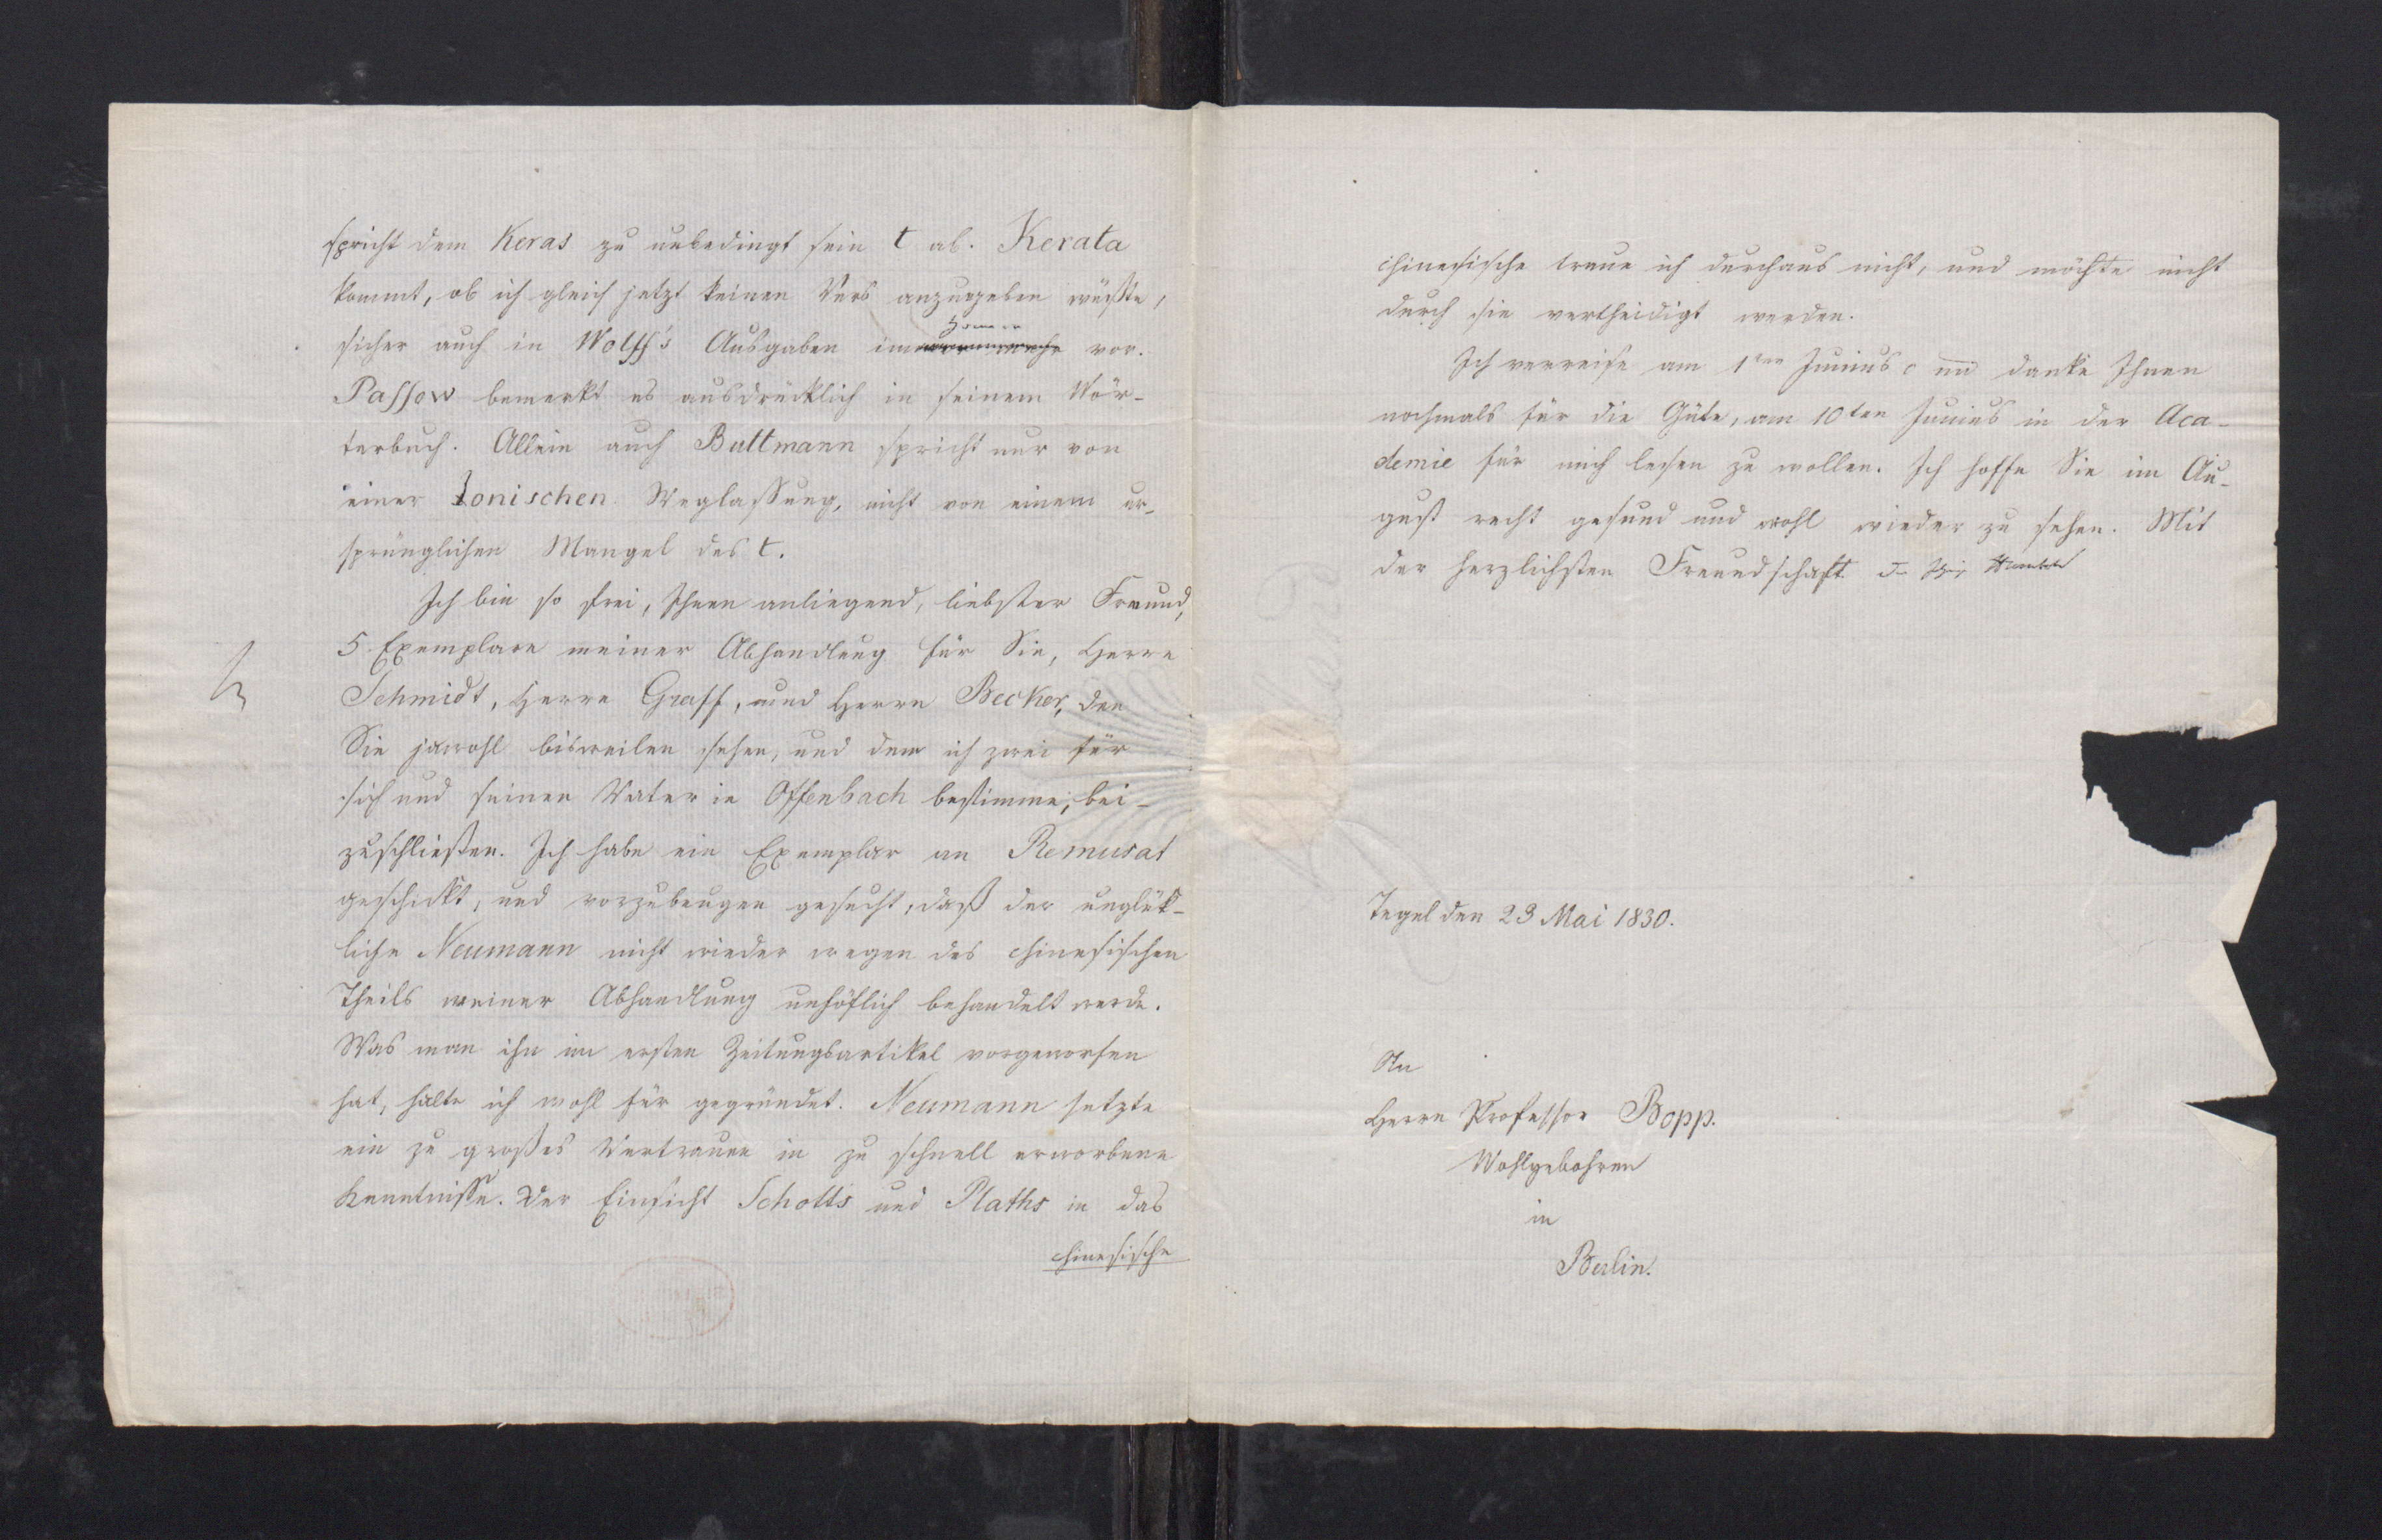 spricht dem Keras zu unbedingt sein t ab. Kerata
kommt, ob ich gleich jetzt keinen Vers anzugeben wüßte,
sicher auch in Wolff's Ausgaben im Homer vor.
Passow bemerkt es ausdrücklich in seinem Wör-
terbuch. Allein auch Buttmann spricht nur von
einer Ionischen Weglassung, nicht von einem ur-
sprünglichen Mangel des t.
Ich bin so frei, Ihnen anliegend, liebster Freund,
5 Exemplare meiner Abhandlung für Sie, Herrn
Schmidt, Herrn Graff, und Herrn Becker, den
Sie jawohl bisweilen sehen, und dem ich zwei für
sich und seinen Vater in Offenbach bestimme, bei-
zuschließen. Ich habe ein Exemplar an Remusat
geschickt, und vorzubeugen gesucht, daß der unglük-
liche Neumann nicht wieder wegen des chinesischen
Theils meiner Abhandlung unhöflich behandelt werde.
Was man ihm im ersten Zeitungsartikel vorgeworfen
hat, halte ich wohl für gegründet. Neumann setzte
ein zu großes Vertrauen in zu schnell erworbene
Kenntnisse. Der Einsicht Schotts und Plaths in das
chinesische
chinesische traue ich durchaus nicht, und möchte nicht
durch sie vertheidigt werden.
Ich verreise am 1ten Junius und danke Ihnen
nochmals für die Güte, am 10ten Junius in der Aca-
demie für mich lesen zu wollen. Ich hoffe Sie im Au-
gust recht gesund und wohl wieder zu sehen. Mit
der herzlichsten Freundschaft der Ihrige Humboldt
Tegel den 23 Mai 1830.
An
Herrn Professor Bopp.
Wohlgebohren
in
Berlin.